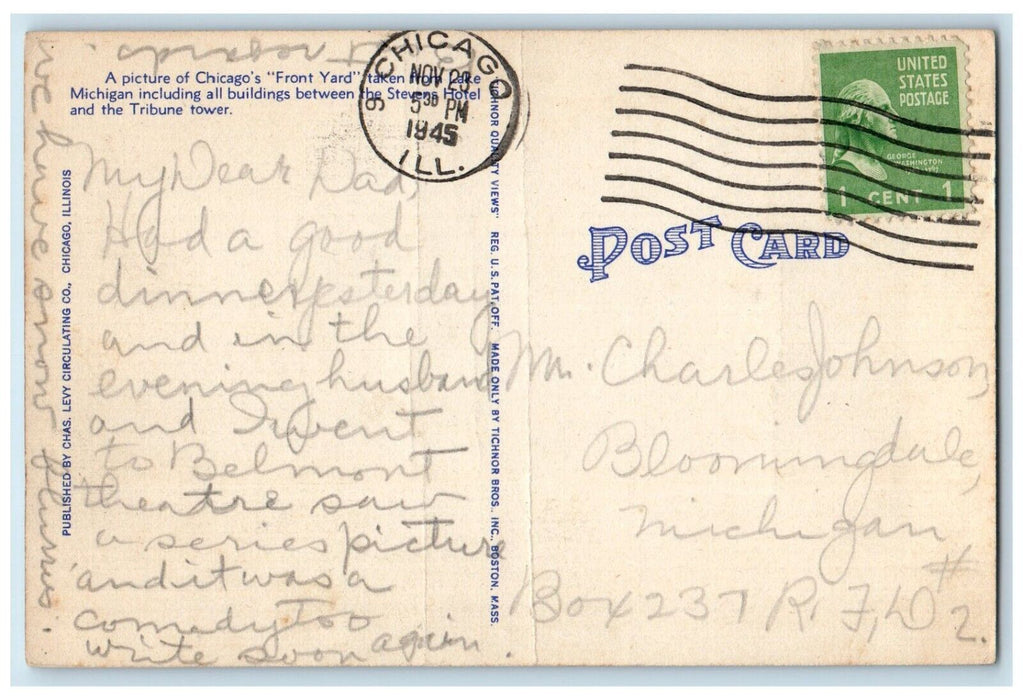 A picture of Chicago's "Front Yard" taken from Lake
Michigan including all buildings between the Stevens Hotel
and the Tribune tower.
PUBLISHED BY CHAS. LEVY CIRCULATING CO., CHICAGO, ILLINOIS
My Dear Dad,
Had a good
dinner yesterday
and in the
evening husband
and I went
to Belmont
theatre saw
a series picture
and it was a
comedy too
write soon again.
we have snow flurries.
TICHNOR QUALITY VIEWS" REG. U.S. PAT. OFF. MADE ONLY BY TICHNOR BROS., INC., BOSTON, MASS.
CHICAGO
9
NOV 23
5 30 PM
1945
ILL.
UNITED
STATES
POSTAGE
GEORGE
WASHINGTON
1 CENT 1
POST CARD
Mr. Charles Johnson,
Bloomingdale,
Michigan
Box 237 R.F.D #2.